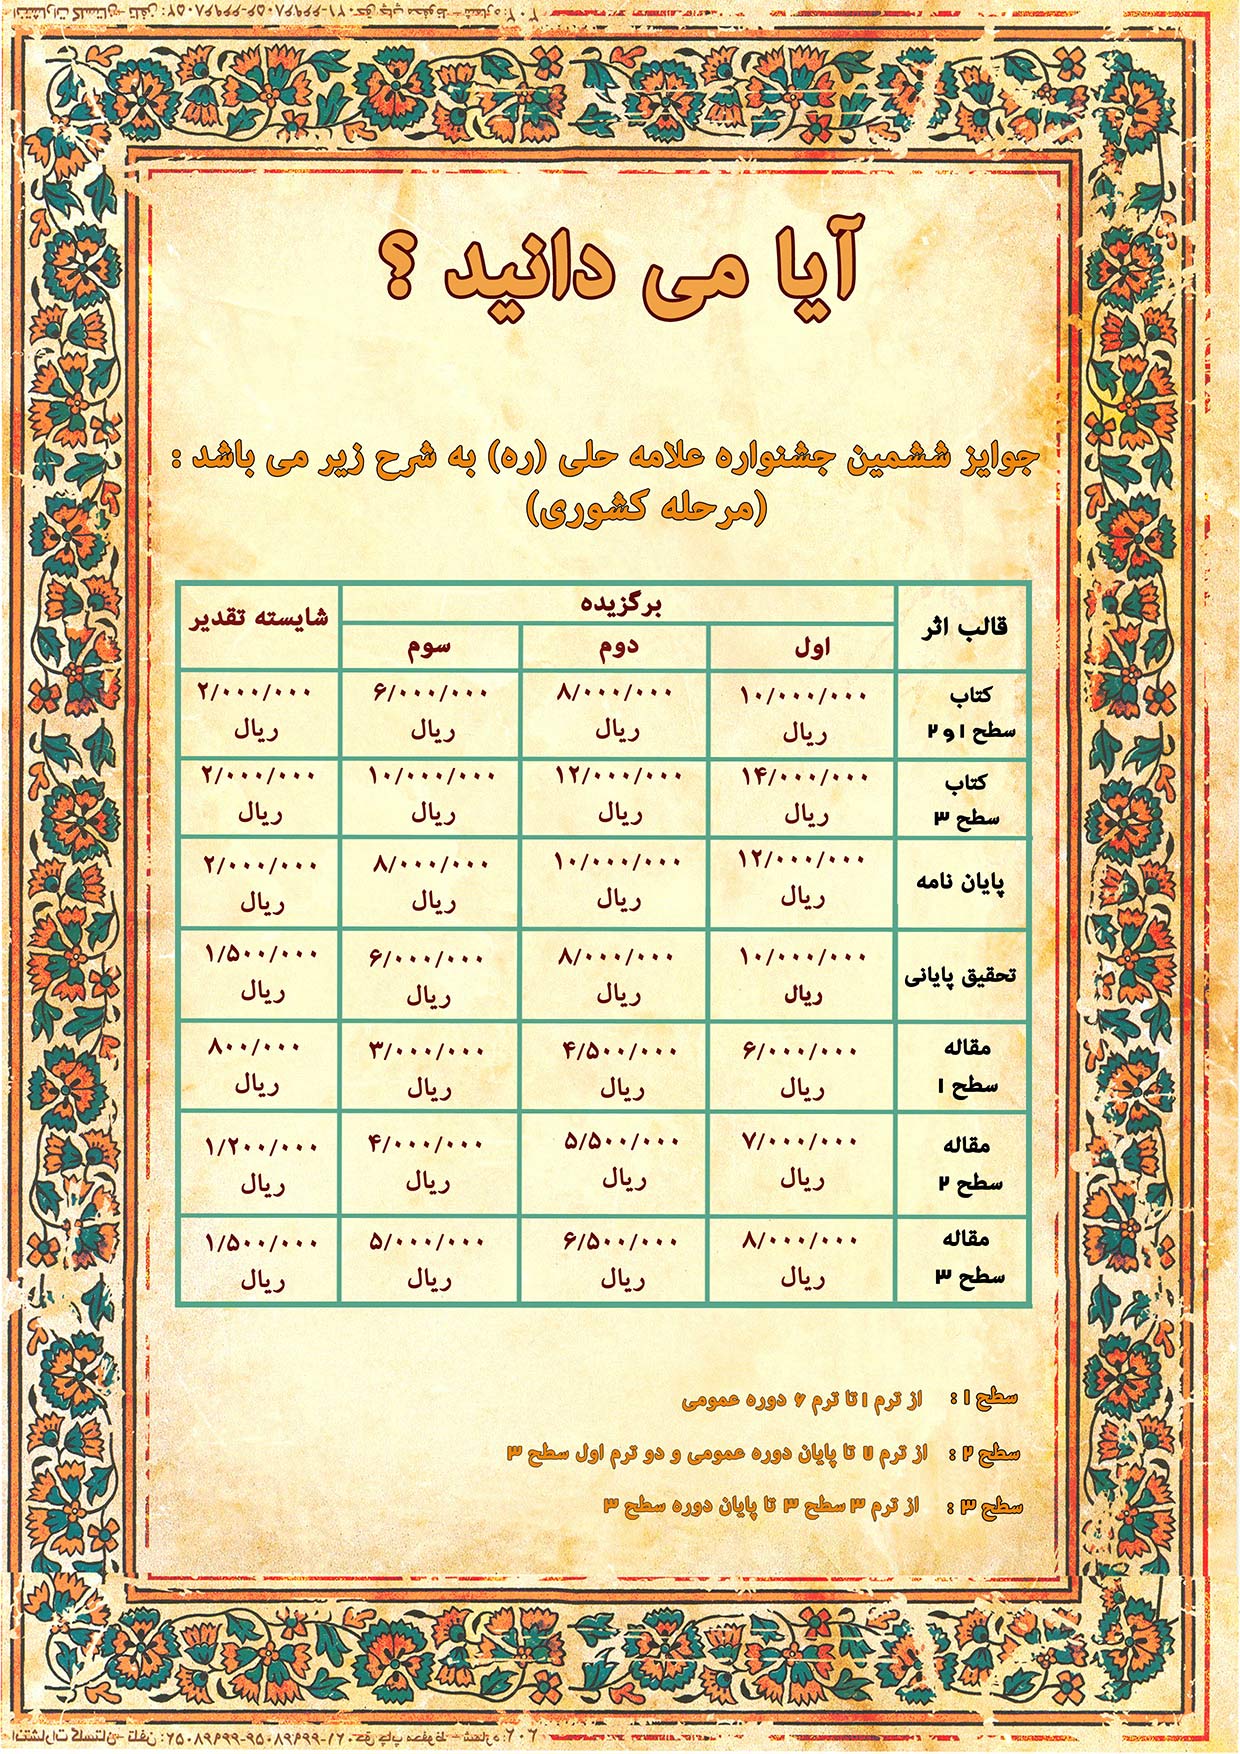 آیا می دانید ؟
جوایز ششمین جشنواره علامه حلی (ره) به شرح زیر می باشد :
(مرحله کشوری)
قالب اثر برگزیده شایسته تقدیر
اول دوم سوم
کتاب ۱۰/۰۰۰/۰۰۰ ۸/۰۰۰/۰۰۰ ۶/۰۰۰/۰۰۰ ۲/۰۰۰/۰۰۰
سطح ۱ و ۲ ریال ریال ریال ریال
کتاب ۱۴/۰۰۰/۰۰۰ ۱۲/۰۰۰/۰۰۰ ۱۰/۰۰۰/۰۰۰ ۲/۰۰۰/۰۰۰
سطح ۳ ریال ریال ریال ریال
پایان نامه ۱۲/۰۰۰/۰۰۰ ۱۰/۰۰۰/۰۰۰ ۸/۰۰۰/۰۰۰ ۲/۰۰۰/۰۰۰
ریال ریال ریال ریال
تحقیق پایانی ۱۰/۰۰۰/۰۰۰ ۸/۰۰۰/۰۰۰ ۶/۰۰۰/۰۰۰ ۱/۵۰۰/۰۰۰
ریال ریال ریال ریال
مقاله ۶/۰۰۰/۰۰۰ ۴/۵۰۰/۰۰۰ ۳/۰۰۰/۰۰۰ ۸۰۰/۰۰۰
سطح ۱ ریال ریال ریال ریال
مقاله ۷/۰۰۰/۰۰۰ ۵/۵۰۰/۰۰۰ ۴/۰۰۰/۰۰۰ ۱/۲۰۰/۰۰۰
سطح ۲ ریال ریال ریال ریال
مقاله ۸/۰۰۰/۰۰۰ ۶/۵۰۰/۰۰۰ ۵/۰۰۰/۰۰۰ ۱/۵۰۰/۰۰۰
سطح ۳ ریال ریال ریال ریال
سطح ۱ : از ترم ۱ تا ترم ۶ دوره عمومی
سطح ۲ : از ترم ۷ تا پایان دوره عمومی و دو ترم اول سطح ۳
سطح ۳ : از ترم ۳ سطح ۳ تا پایان دوره سطح ۳